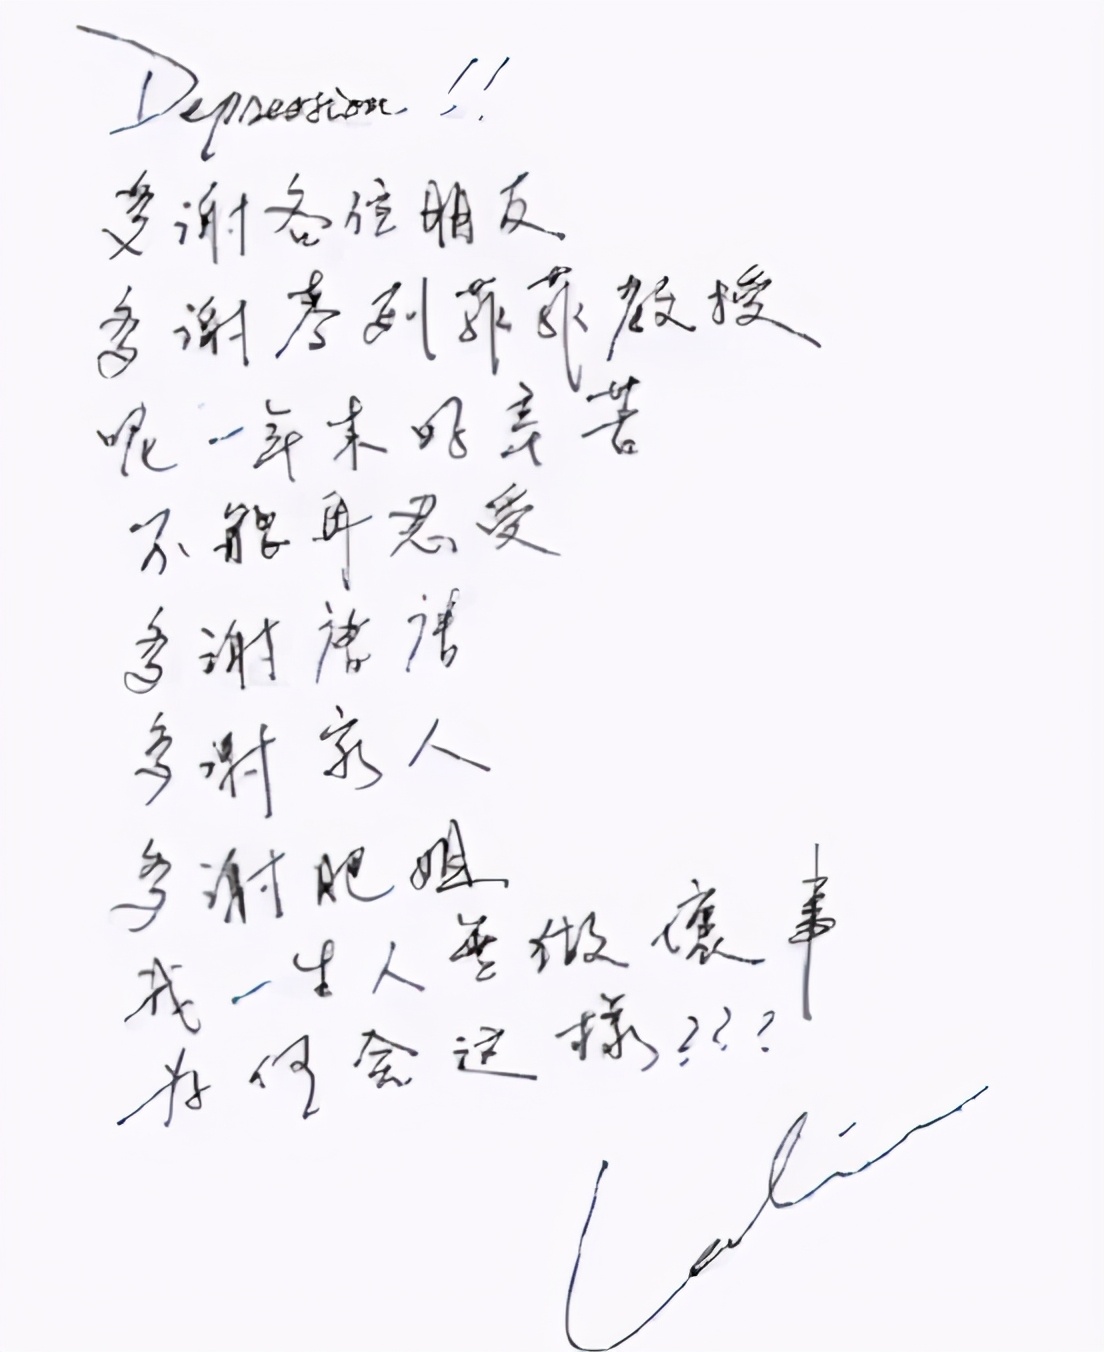 Depression!!
多谢各位朋友
多谢麦列菲菲教授
呢一年来的辛苦
不能再忍受
多谢唐唐
多谢家人
多谢肥姐
我一生人无做壞事
为何会这樣???
Leslie